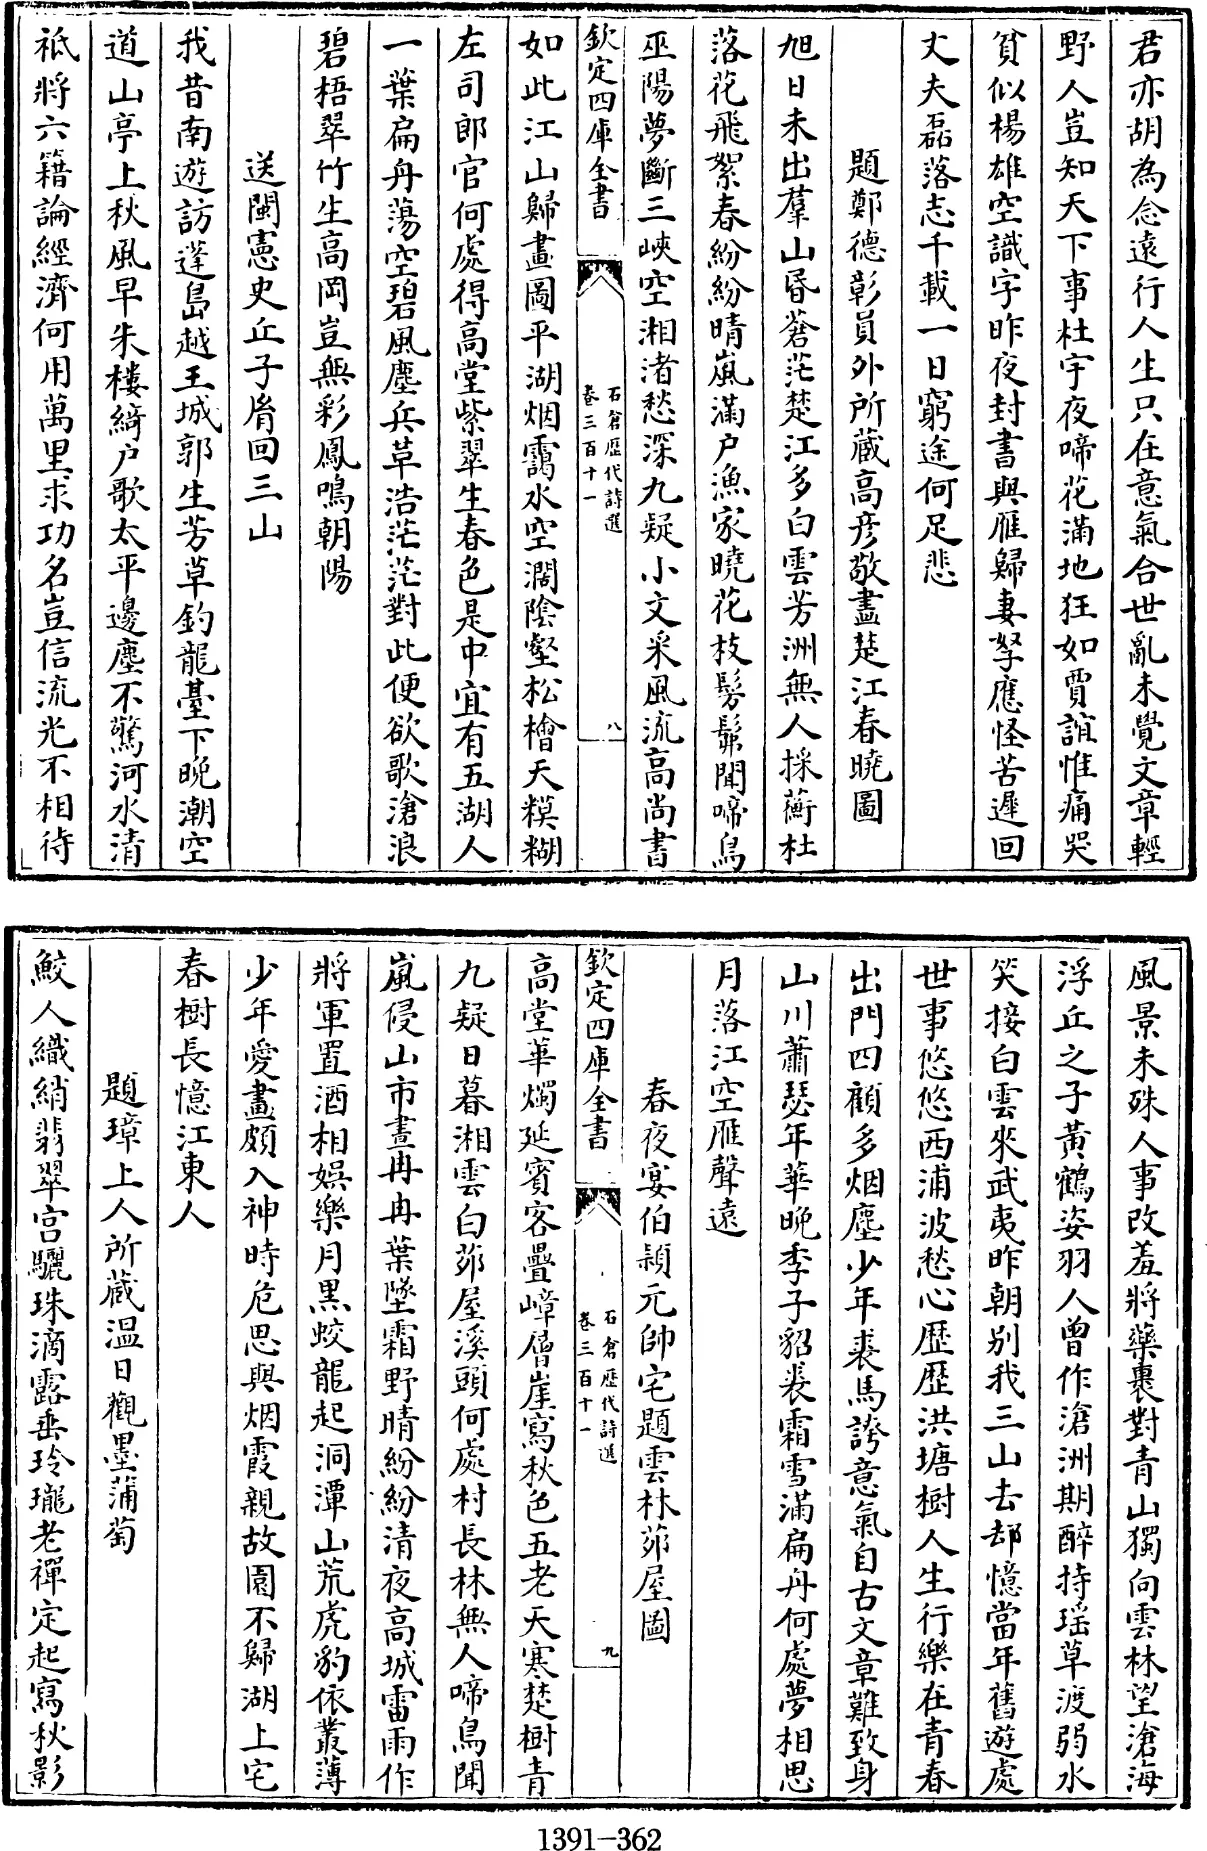 君亦胡為念遠行人生只在意氣合世亂未覺文章輕
野人豈知天下事杜宇夜啼花滿地狂如賈誼惟痛哭
貧似楊雄空識字昨夜封書與雁歸妻孥應怪苦遲回
丈夫磊落志千載一日窮途何足悲
題鄭德彰員外所蔵高彦敬畫楚江春曉圖
旭日未出羣山昏蒼茫楚江多白雲芳洲無人採蘅杜
落花飛絮春紛紛晴嵐滿户漁家曉花枝髣髴聞啼鳥
巫陽夢斷三峽空湘渚愁深九疑小文采風流高尚書
欽定四庫全書
石倉歴代詩選
卷三百十一
八
如此江山歸畫圖平湖烟靄水空濶陰壑松檜天糢糊
左司郎官何處得高堂紫翠生春色是中宜有五湖人
一葉扁舟蕩空碧風塵兵革浩茫茫對此便欲歌滄浪
碧梧翠竹生高岡豈無彩鳳鳴朝陽
送閩憲史丘子肯回三山
我昔南遊訪蓬島越王城郭生芳草釣龍臺下晚潮空
道山亭上秋風早朱樓綺户歌太平邊塵不驚河水清
祗將六籍論經濟何用萬里求功名豈信流光不相待
風景未殊人事改羞將藥裹對青山獨向雲林望滄海
浮丘之子黃鶴姿羽人曾作滄洲期醉持瑶草渡弱水
笑接白雲來武夷昨朝别我三山去却憶當年舊遊處
世事悠悠西浦波愁心歴歴洪塘樹人生行樂在青春
出門四顧多烟塵少年裘馬誇意氣自古文章難致身
山川蕭瑟年華晚季子貂裘霜雪滿扁舟何處夢相思
月落江空雁聲遠
春夜宴伯顔元帥宅題雲林茆屋圖
欽定四庫全書
石倉歴代詩選
卷三百十一
九
高堂華燭延賓客疊嶂層崖寫秋色五老天寒楚樹青
九疑日暮湘雲白茆屋溪頭何處村長林無人啼鳥聞
嵐侵山市晝冉冉葉墜霜野晴紛紛清夜高城雷雨作
將軍置酒相娱樂月黑蛟龍起洞潭山荒虎豹依叢薄
少年愛畫頗入神時危思與烟霞親故園不歸湖上宅
春樹長憶江東人
題璋上人所蔵温日觀墨蒲萄
鮫人織綃翡翠宫驪珠滴露垂玲瓏老禪定起寫秋影
1391-362